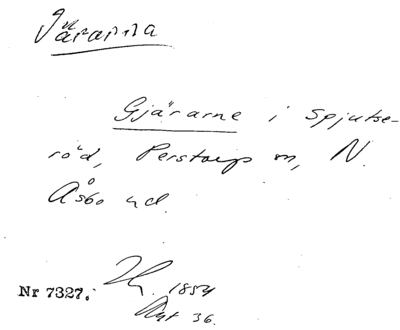 Järarna
Gjärarne i Spjutse-
röd, Perstorps sn, N.
Åsbo hd.
Nr 7327. 1854
Akt 36.